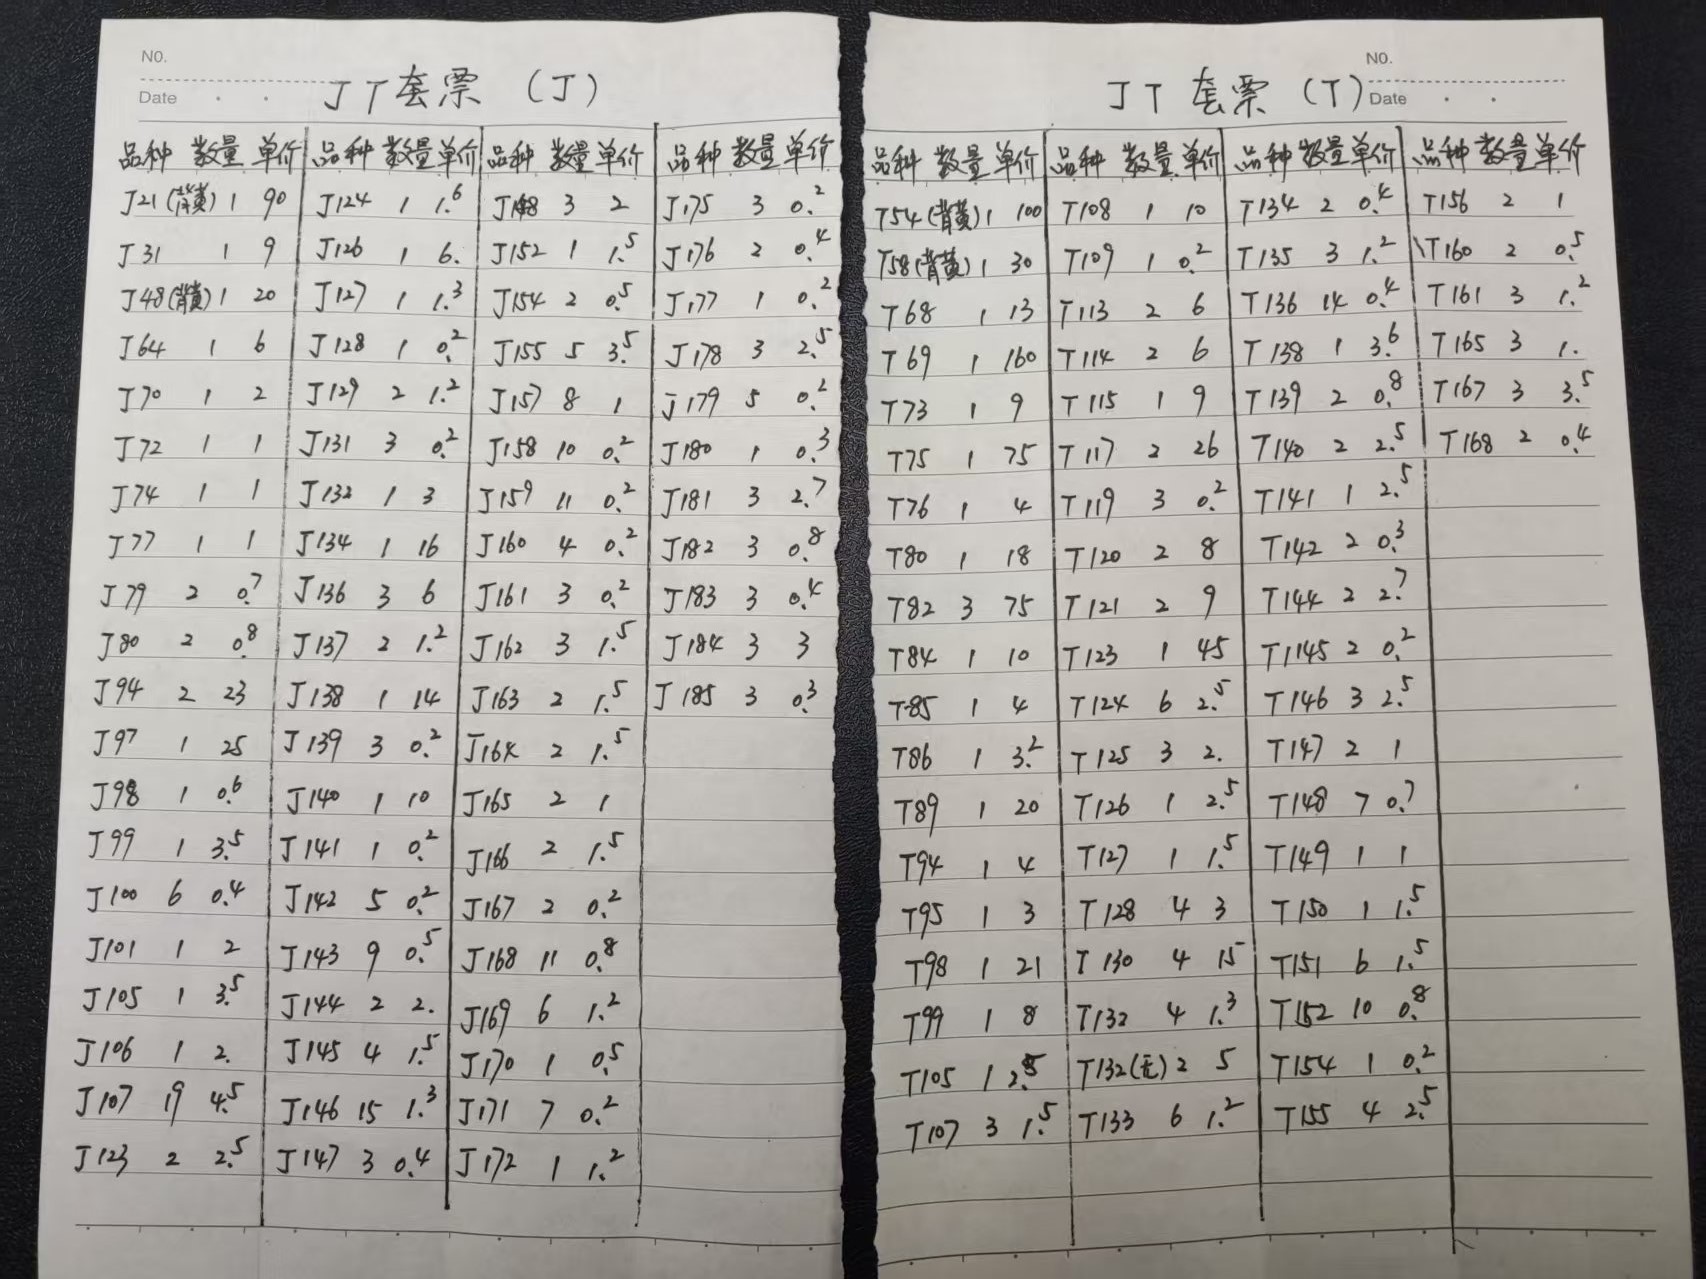 NO.
Date
JT套票 (J)
品种 数量 单价 品种 数量 单价 品种 数量 单价 品种 数量 单价
J21(背黄) 1 90 J124 1 1.6 J148 3 2 J175 3 0.2
J31 1 9 J126 1 6. J152 1 1.5 J176 2 0.4
J48(背黄) 1 20 J127 1 1.3 J154 2 0.5 J177 1 0.2
J64 1 6 J128 1 0.2 J155 5 3.5 J178 3 2.5
J70 1 2 J129 2 1.2 J157 8 1 J179 5 0.2
J72 1 1 J131 3 0.2 J158 10 0.2 J180 1 0.3
J74 1 1 J132 1 3 J159 11 0.2 J181 3 2.7
J77 1 1 J134 1 16 J160 4 0.2 J182 3 0.8
J79 2 0.7 J136 3 6 J161 3 0.2 J183 3 0.4
J80 2 0.8 J137 2 1.2 J162 3 1.5 J184 3 3
J94 2 23 J138 1 14 J163 2 1.5 J185 3 0.3
J97 1 25 J139 3 0.2 J164 2 1.5
J98 1 0.6 J140 1 10 J165 2 1
J99 1 3.5 J141 1 0.2 J166 2 1.5
J100 6 0.4 J142 5 0.2 J167 2 0.2
J101 1 2 J143 9 0.5 J168 11 0.8
J105 1 3.5 J144 2 2. J169 6 1.2
J106 1 2. J145 4 1.5 J170 1 0.5
J107 19 4.5 J146 15 1.3 J171 7 0.2
J123 2 2.5 J147 3 0.4 J172 1 1.2
NO.
JT 套票 (T) Date
品种 数量 单价 品种 数量 单价 品种 数量 单价 品种 数量 单价
T54(背黄) 1 100 T108 1 10 T134 2 0.4 T156 2 1
T58(背黄) 1 30 T109 1 0.2 T135 3 1.2 T160 2 0.5
T68 1 13 T113 2 6 T136 14 0.4 T161 3 1.2
T69 1 160 T114 2 6 T138 1 3.6 T165 3 1.
T73 1 9 T115 1 9 T139 2 0.8 T167 3 3.5
T75 1 75 T117 2 26 T140 2 2.5 T168 2 0.4
T76 1 4 T119 3 0.2 T141 1 2.5
T80 1 18 T120 2 8 T142 2 0.3
T82 3 75 T121 2 9 T144 2 2.7
T84 1 10 T123 1 45 T1145 2 0.2
T85 1 4 T124 6 2.5 T146 3 2.5
T86 1 3.2 T125 3 2. T147 2 1
T89 1 20 T126 1 2.5 T148 7 0.7
T94 1 4 T127 1 1.5 T149 1 1
T95 1 3 T128 4 3 T150 1 1.5
T98 1 21 T130 4 15 T151 6 1.5
T99 1 8 T132 4 1.3 T152 10 0.8
T105 1 2.5 T132(无) 2 5 T154 1 0.2
T107 3 1.5 T133 6 1.2 T155 4 2.5